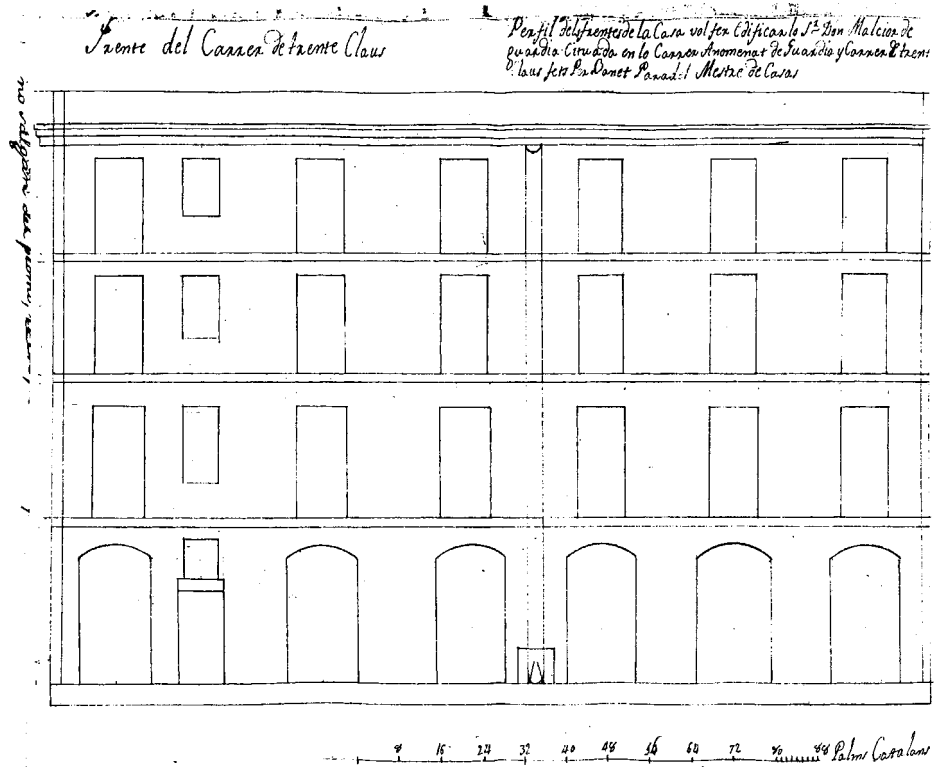 Frente del Carrer de trente Claus
Perfil dels frentes de la Casa vol fer Edificar lo Sr. Don Malcior de
guardia Cituada en lo Carrer Anomenat de Guardia y Carrer de trent
Claus fets Per Donet Mestre de Casas
no
8 16 24 32 40 48 56 64 72 80 88 Palms Catalans